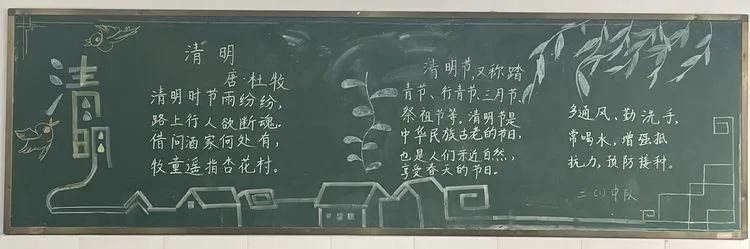 清明
清 明
唐·杜牧
清明时节雨纷纷，
路上行人欲断魂。
借问酒家何处有，
牧童遥指杏花村。
清明节，又称踏
青节、行青节、三月节、
祭祖节等。清明节是
中华民族古老的节日，
也是人们亲近自然，
享受春天的节日。
多通风、勤洗手，
常喝水，增强抵
抗力，预防接种。
二（1）中队